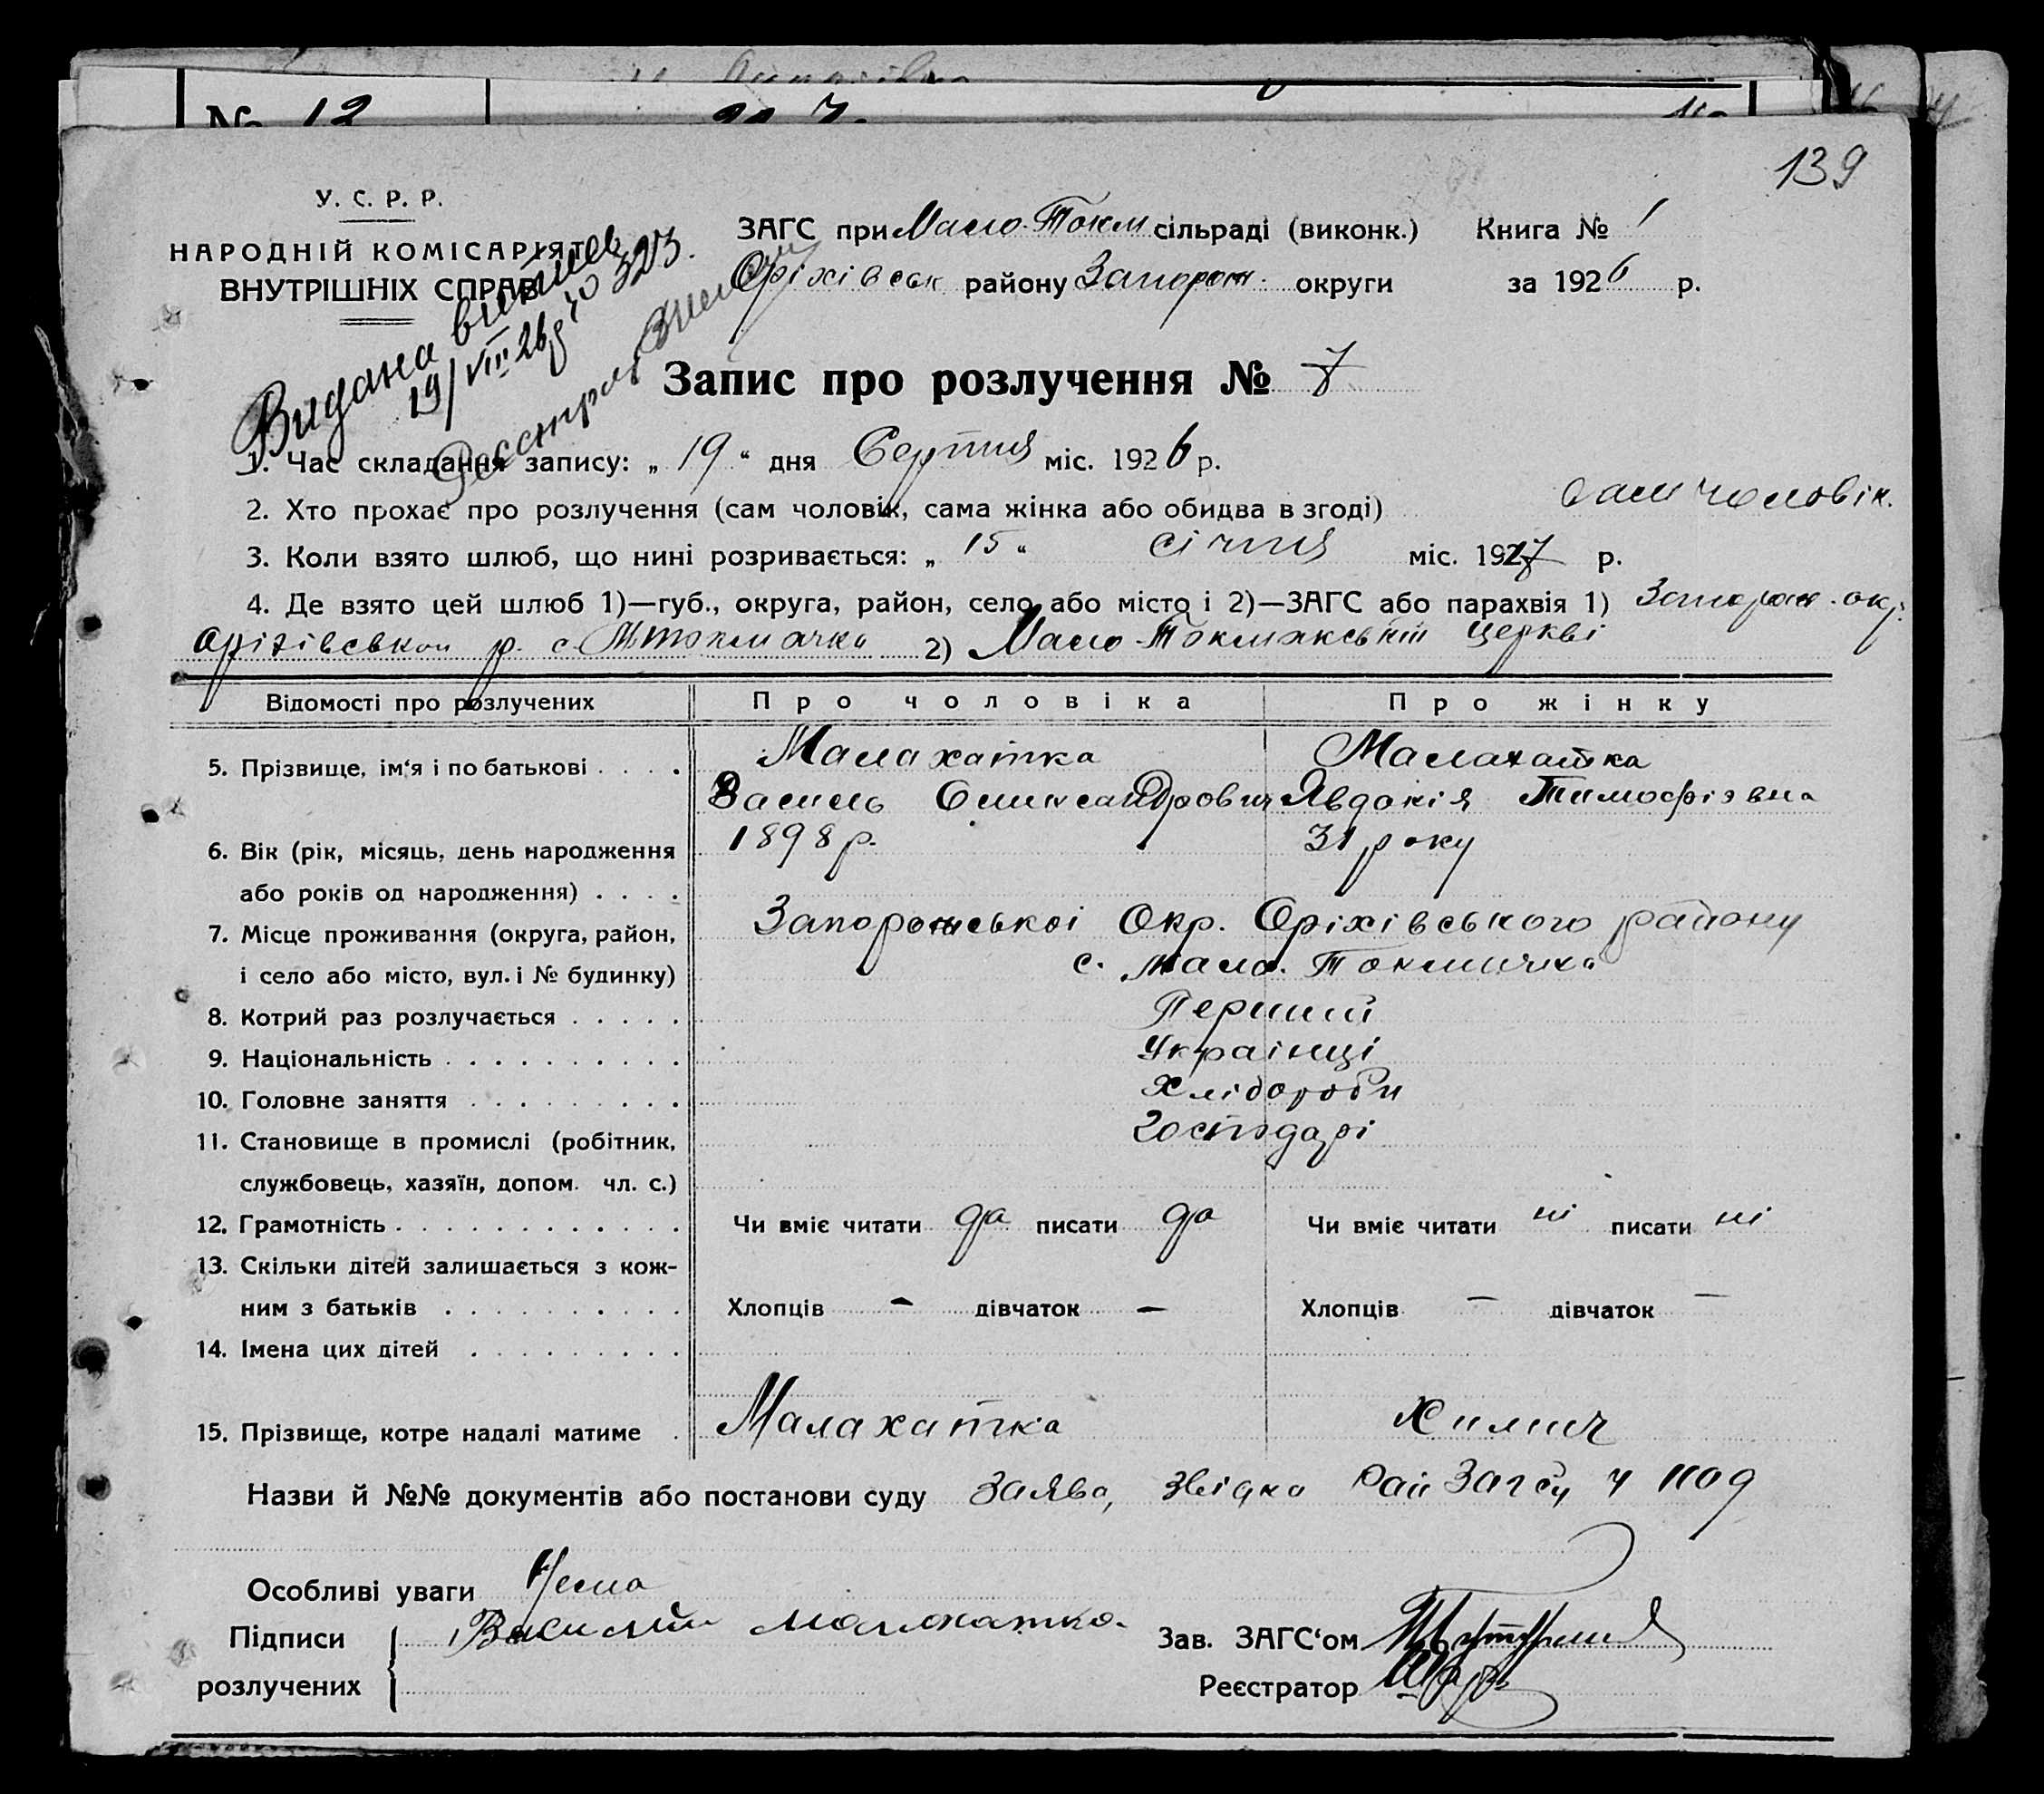 № 12
139
У. С. Р. Р.
НАРОДНІЙ КОМІСАРІЯТ
ВНУТРІШНІХ СПРАВ
ЗАГС при Мало-Токм сільраді (виконк.) Книга № 1
Оріхівськ району Запорож. округи за 1926 р.
Видана
19/VIII 26 р 323.
Запис про розлучення № 7
1. Час складання запису: „ 19 “ дня Серпня міс. 1926 р.
2. Хто прохає про розлучення (сам чоловік, сама жінка або обидва в згоді) Сам чоловік.
3. Коли взято шлюб, що нині розривається: „ 15 “ січня міс. 1917 р.
4. Де взято цей шлюб 1)—губ., округа, район, село або місто і 2)—ЗАГС або парахвія 1) Запорож. окр.
Оріхівськоі р. с. М Токмачка 2) Мало-Токмакській церкві
Відомості про розлучених Про чоловіка Про жінку
5. Прізвище, ім‘я і по батькові . . . . Малахатка Малахатка
Василь Олександрович Явдокія Тимофієвна
6. Вік (рік, місяць, день народження 1898 р. 31 року
або років од народження) . . . .
7. Місце проживання (округа, район, Запорожськоі Окр. Оріхівського району
і село або місто, вул. і № будинку) с. Мало. Токмачка
8. Котрий раз розлучається . . . . . Перший
9. Національність . . . . . . . . . . Украінці
10. Головне заняття . . . . . . . . . Хлібороби
11. Становище в промислі (робітник, Господарі
службовець, хазяїн, допом. чл. с.)
12. Грамотність . . . . . . . . . . . . Чи вміє читати да писати да Чи вміє читати ні писати ні
13. Скільки дітей залишається з кож-
ним з батьків . . . . . . . . . . Хлопців — дівчаток — Хлопців — дівчаток —
14. Імена цих дітей . . . . . . . . .
15. Прізвище, котре надалі матиме . Малахатка Хилич
Назви й №№ документів або постанови суду Заява, звідка Рай Загсу ч 1109
Особливі уваги Нема
Підписи Василий Малахатка.
розлучених
Зав. ЗАГС‘ом
Реєстратор